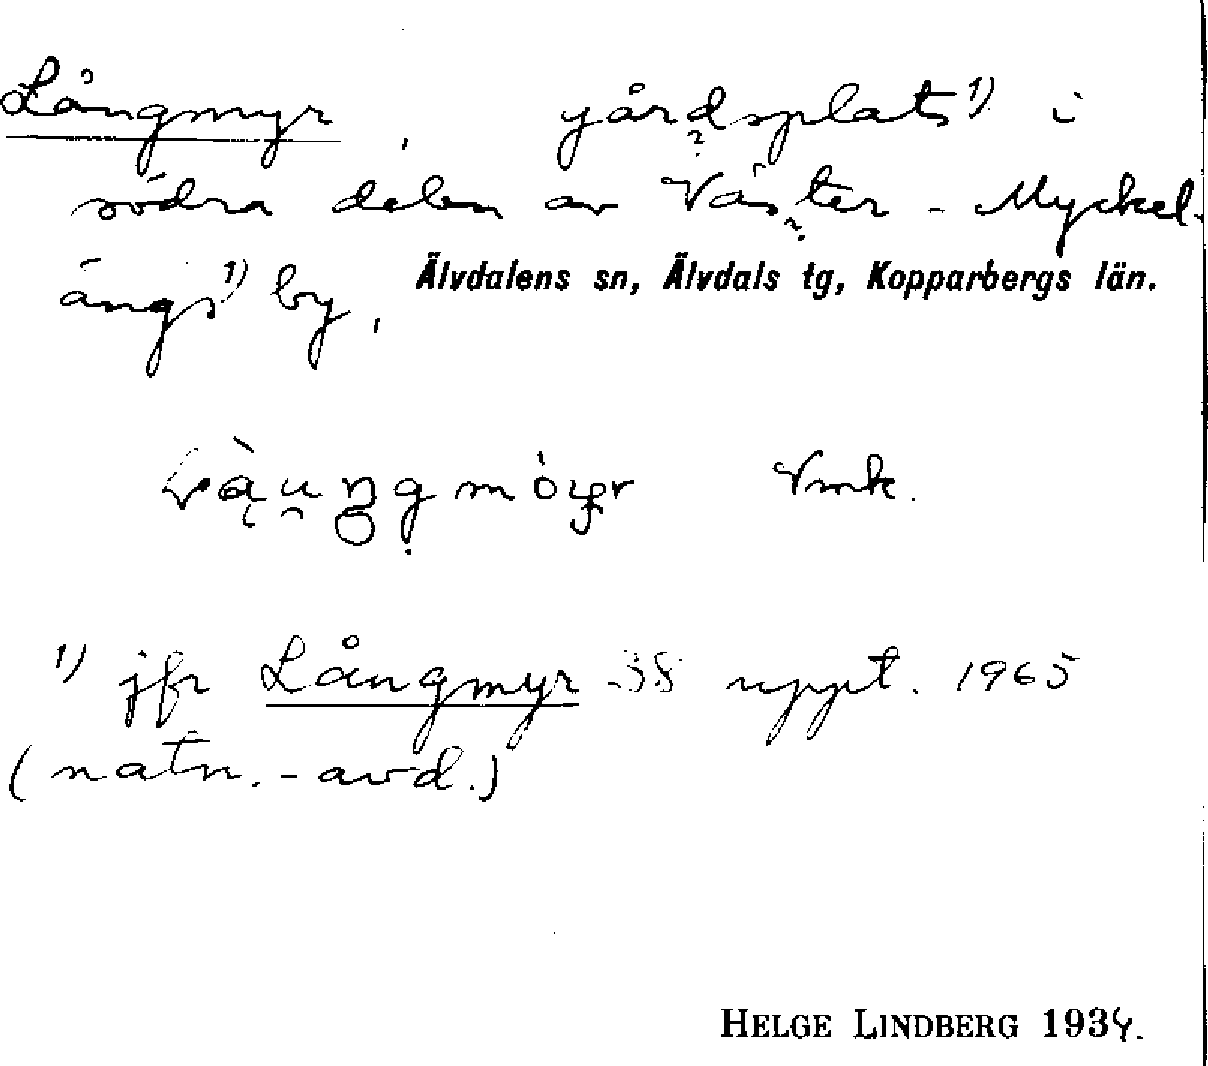 Långmyr, gårdsplats 1) i
södra delen av Väster-Myckel-
ängs 1) by, Älvdalens sn, Älvdals tg, Kopparbergs län.
Vmk.
1) jfr Långmyr 38 uppt. 1965
(natn.-avd.)
HELGE LINDBERG 1934.